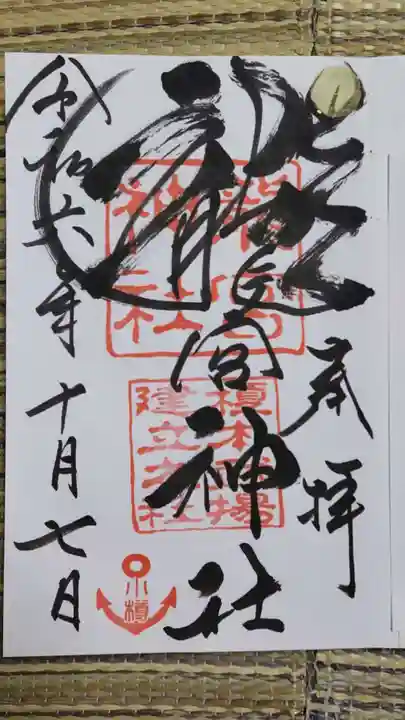 奉拝
龍宮神社
龍宮
神社
榎本武揚
建立之社
小樽
令和六年十月七日